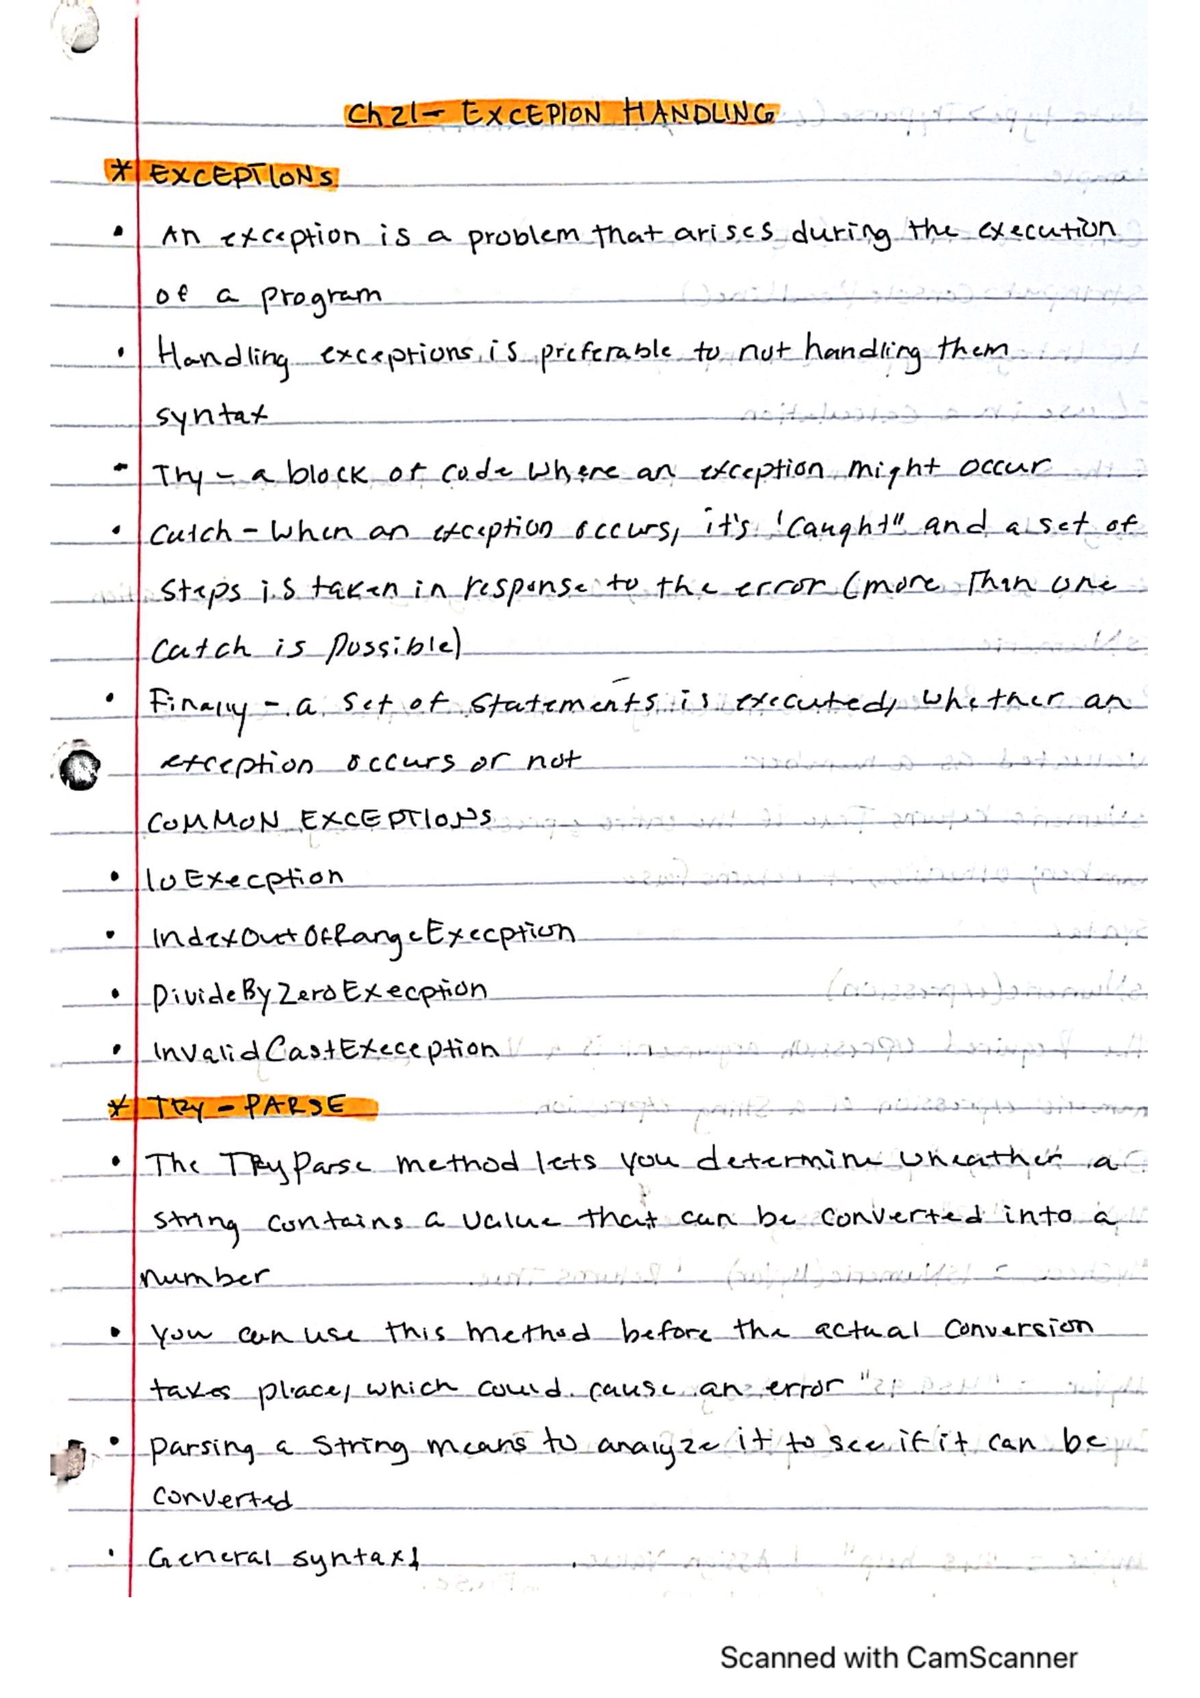 Ch 21 - EXCEPION HANDLING
* EXCEPTIONS
• An exception is a problem that arises during the execution
of a program
• Handling exceptions is preferable to not handling them
syntax
- Try - a block of code where an exception might occur
• Catch - when an exception occurs, it's 'caught" and a set of
steps is taken in response to the error (more than one
catch is possible)
• Finally - a set of statements is executed, whether an
exception occurs or not
COMMON EXCEPTIONS
• IoExecption
• IndexOutOfRangeExecption
• DivideByZeroExecption
• InvalidCastExeception
* TRY - PARSE
• The TRyParse method lets you determine wheather a
string contains a value that can be converted into a
number
• You can use this method before the actual conversion
takes place, which could cause an error
• parsing a string means to analyze it to see if it can be
converted
• General syntax:
Scanned with CamScanner